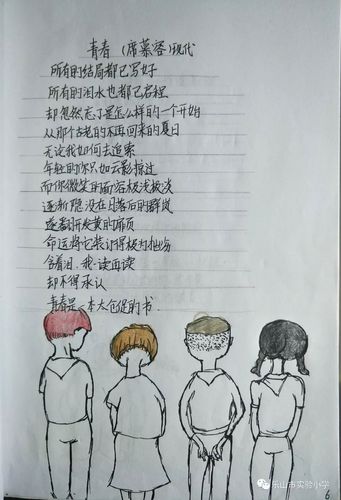 青春（席慕容）现代
所有的结局都已写好
所有的泪水也都已启程
却忽然忘了是怎么样的一个开始
从那个古老的不再回来的夏日
无论我如何去追索
年轻的你只如云影掠过
而你微笑的面容极浅极淡
逐渐隐没在日落后的群岚
遂翻开发黄的扉页
命运将它装订得极为拙劣
含着泪，我一读再读
却不得不承认
青春是一本太仓促的书
6
乐山市实验小学